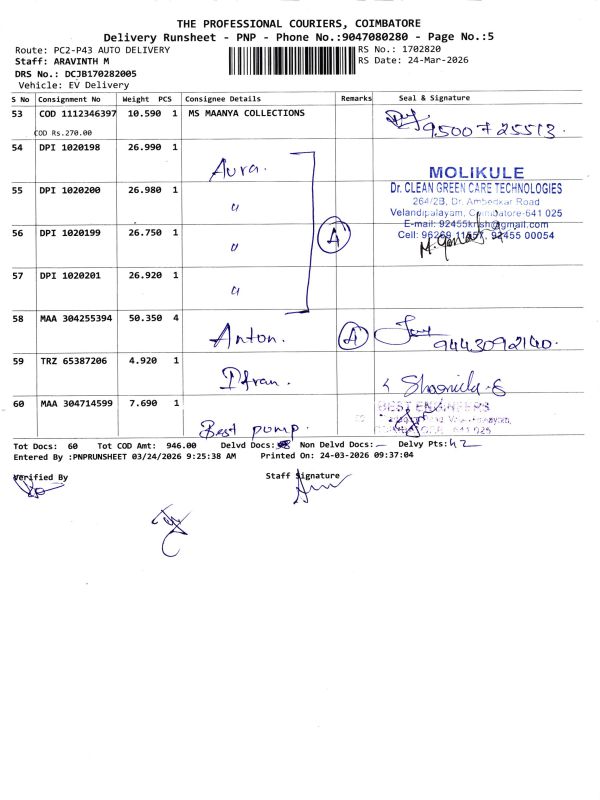 THE PROFESSIONAL COURIERS, COIMBATORE
Delivery Runsheet - PNP - Phone No.:9047080280 - Page No.:5
Route: PC2-P43 AUTO DELIVERY
RS No.: 1702820
Staff: ARAVINTH M
RS Date: 24-Mar-2026
DRS No.: DCJB170282005
Vehicle: EV Delivery
S No Consignment No Weight PCS Consignee Details Remarks Seal & Signature
53 COD 1112346397 10.590 1 MS MAANYA COLLECTIONS
COD Rs.270.00
9500725513.
54 DPI 1020198 26.990 1
Aura.
MOLIKULE
Dr. CLEAN GREEN CARE TECHNOLOGIES
264/2B, Dr. Ambedkar Road
Velandipalayam, Coimbatore-641 025
E-mail: 92455krish@gmail.com
Cell: 96269 11657, 92455 00054
55 DPI 1020200 26.980 1
"
56 DPI 1020199 26.750 1
" A
57 DPI 1020201 26.920 1
"
58 MAA 304255394 50.350 4
Anton. A 9443092140.
59 TRZ 65387206 4.920 1
60 MAA 304714599 7.690 1
Best pump.
BEST ENGINEERS
641 025
Tot Docs: 60 Tot COD Amt: 946.00 Delvd Docs: Non Delvd Docs: Delvy Pts:
Entered By :PNPRUNSHEET 03/24/2026 9:25:38 AM Printed On: 24-03-2026 09:37:04
Verified By Staff Signature